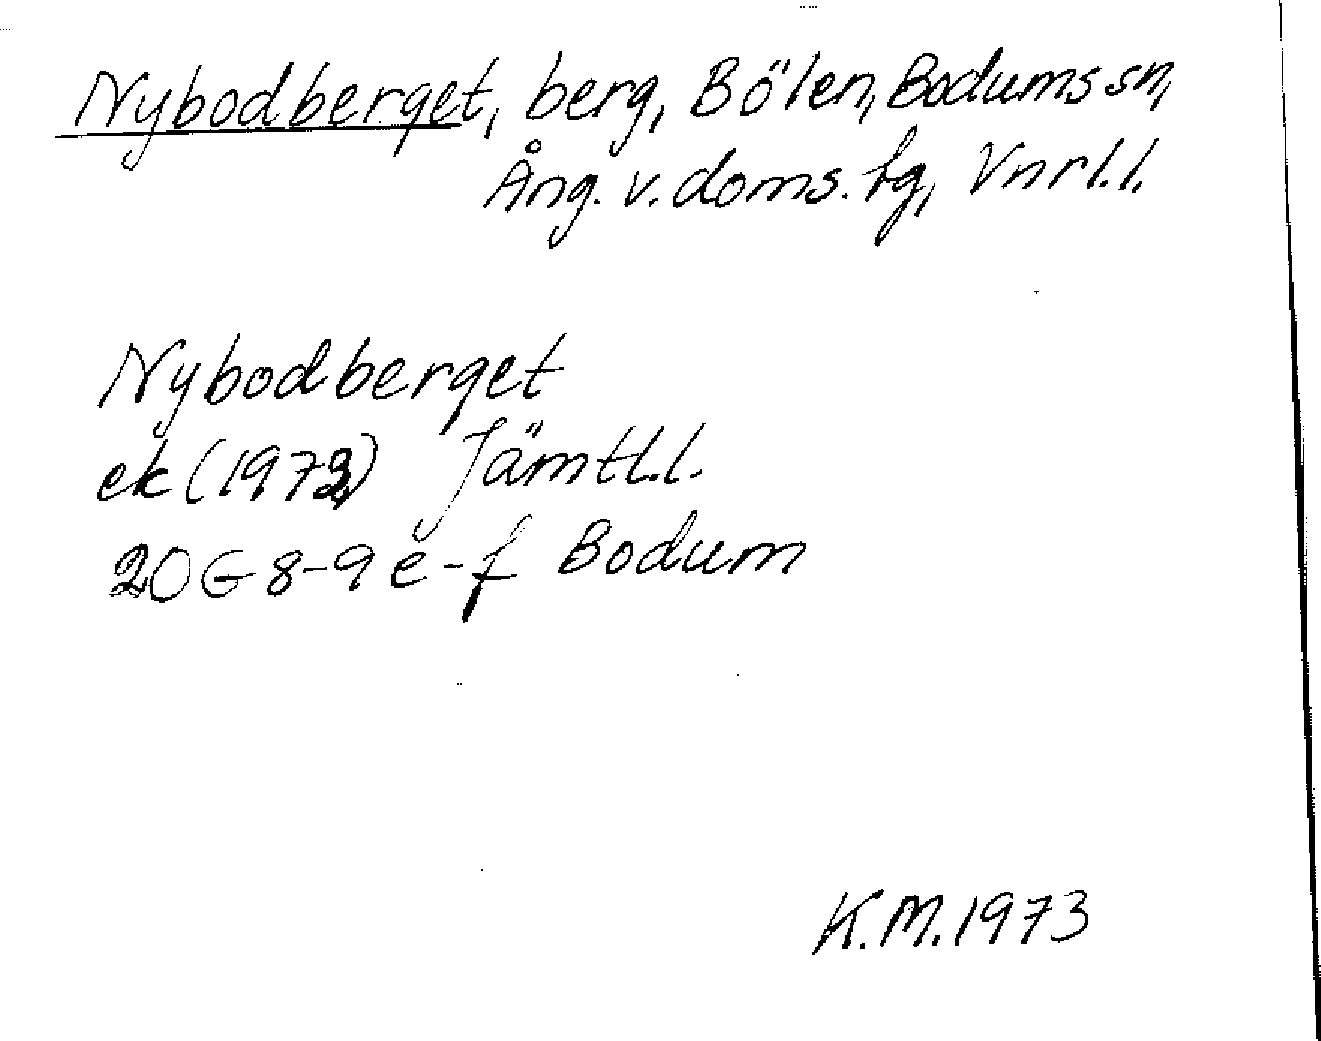 Nybodberget, berg, Bölen, Bodums sn,
Ång. v. doms. fg, Vnrl. l.
Nybodberget
ek (1973) Jämtl. l.
20 G 8-9 e-f Bodum
K.M. 1973